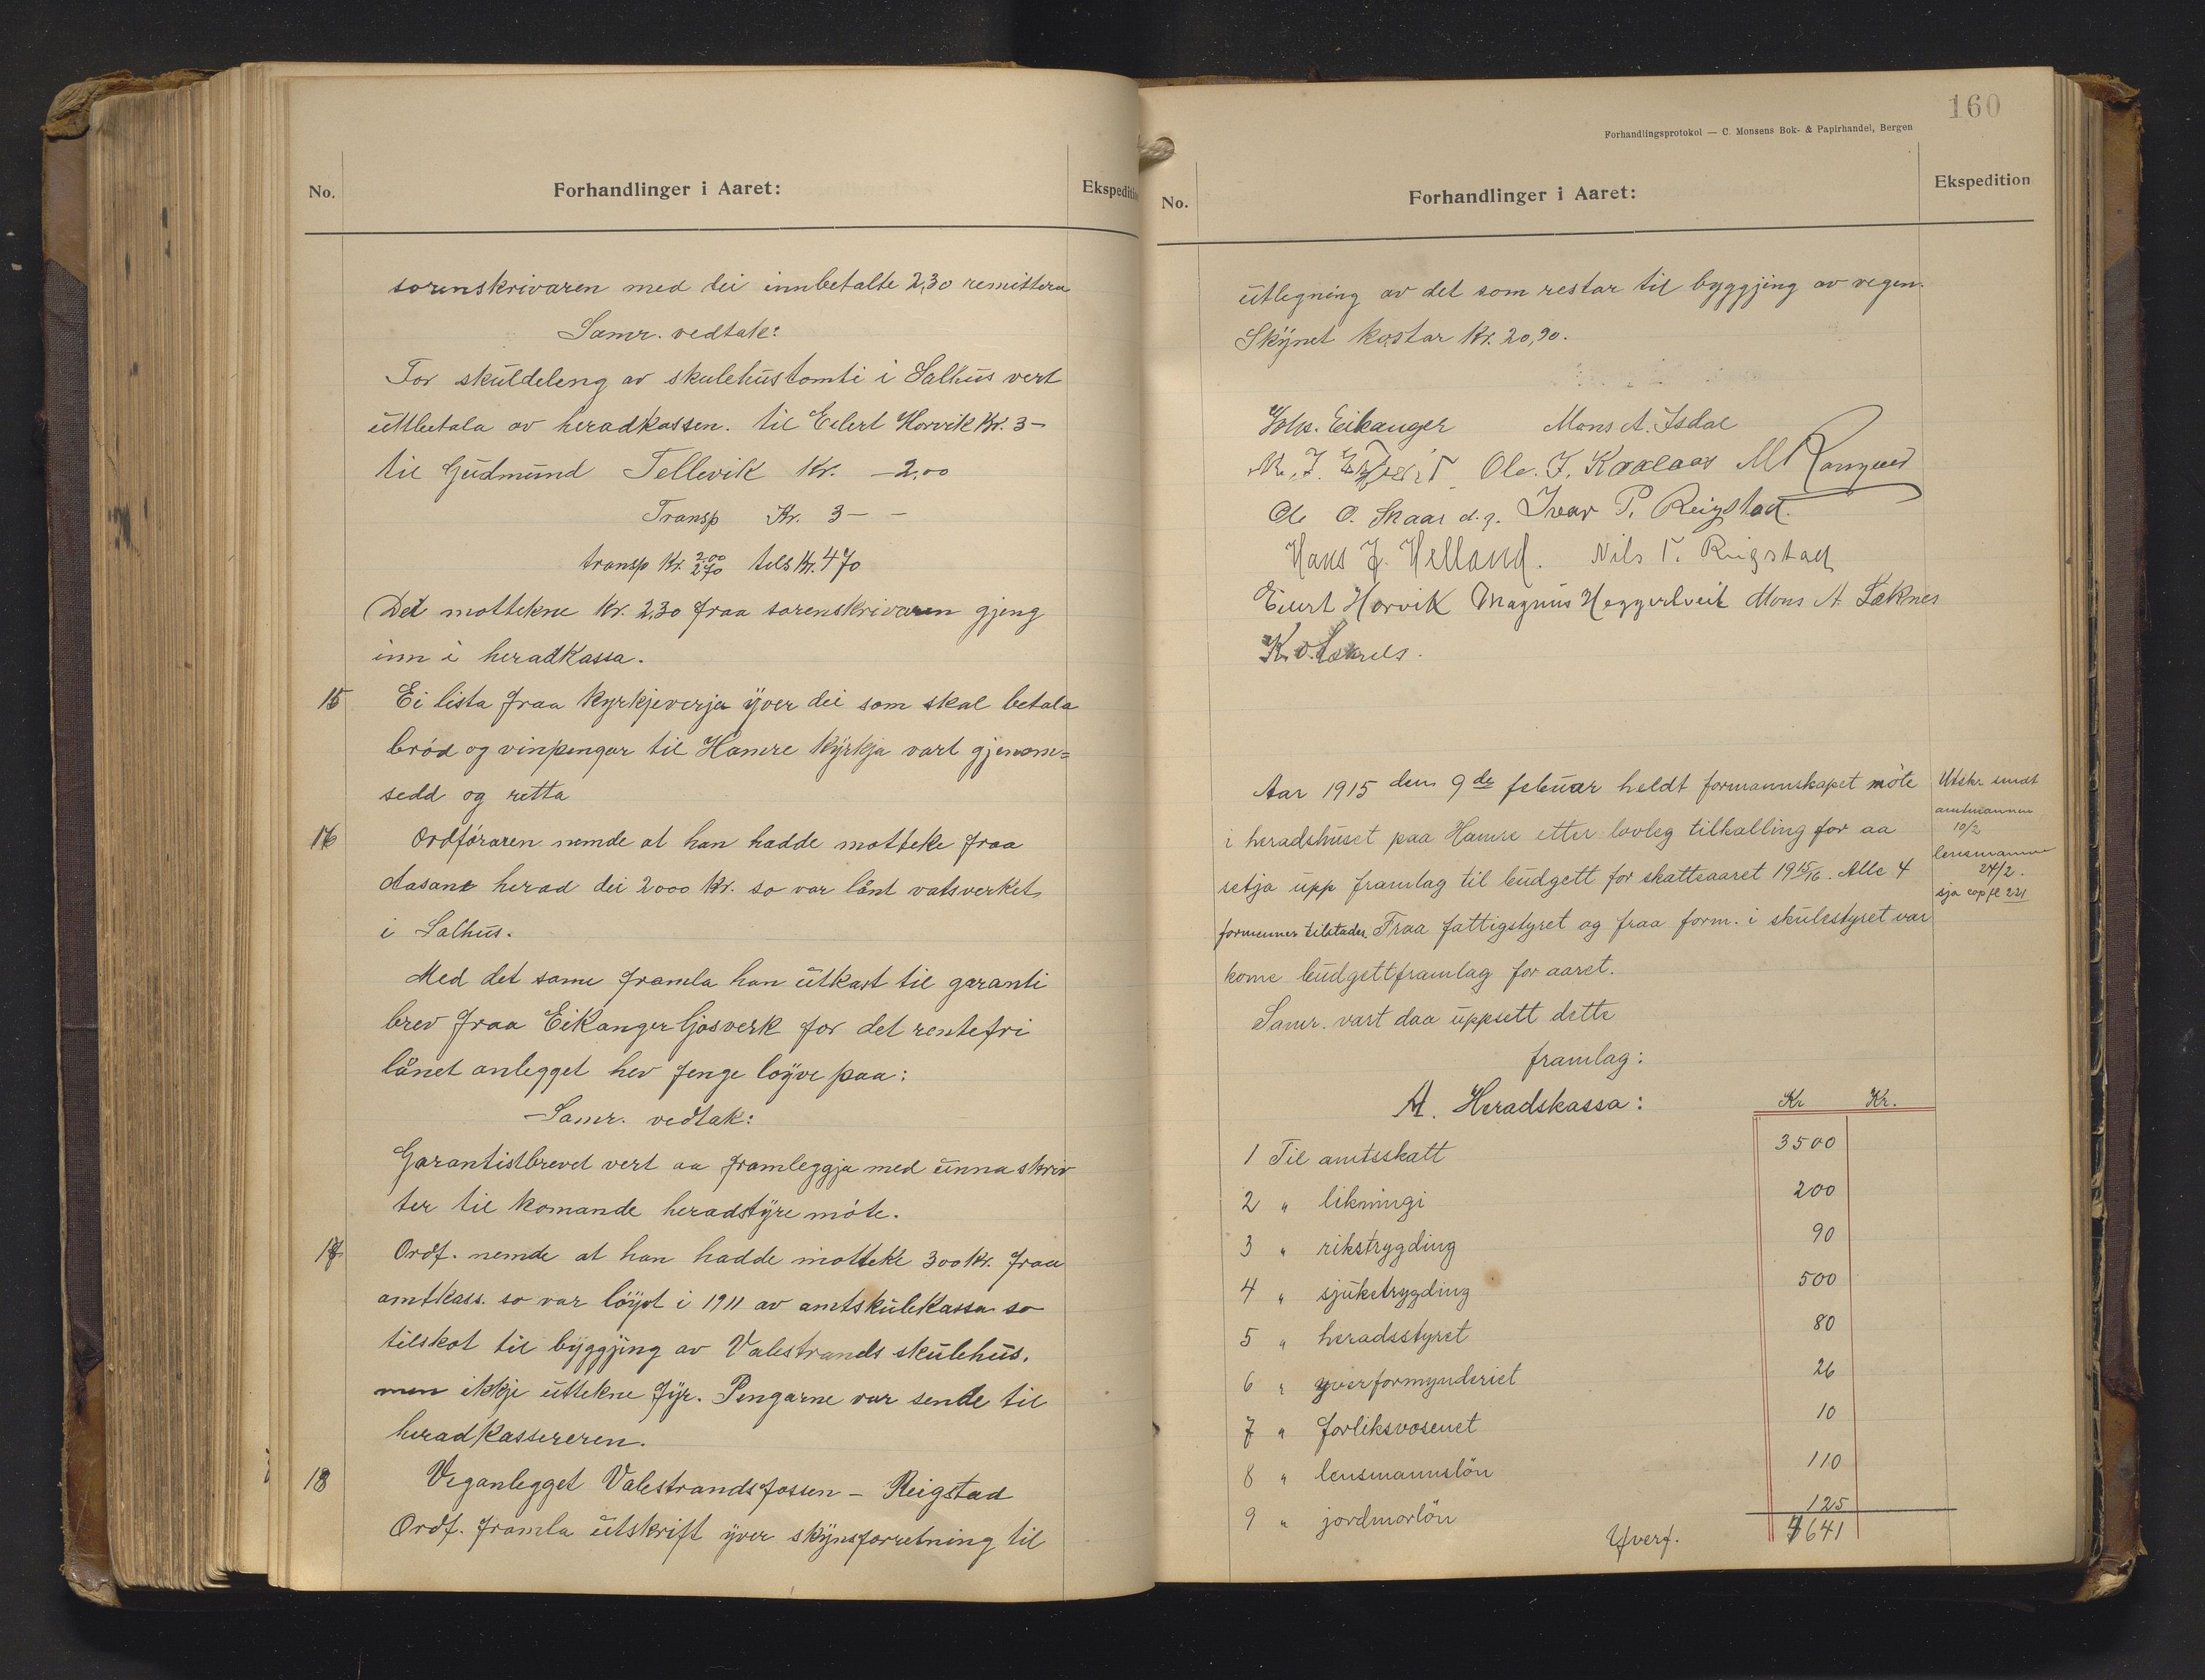 No.
Forhandlinger i Aaret:
Ekspedition
sorenskrivaren med dei innbetalte 2,30 remittera
Samr. vedtak:
For skuldeleng av skulehustomti i Salhus vert
uttbetala av heradkassen. til Eilert Horvik Kr. 3-
til Gudmund Tellevik Kr. - 2,00
Transp Kr. 3 - -
transp Kr. 2,00 2 70 tils Kr. 4 70
Det mottekne Kr. 2,30 fraa sorenskrivaren gjeng
inn i heradkassa.
15 Ei lista fraa kyrkjeverja yver dei som skal betala
brød og vinpengar til Hamre kyrkja vart gjenom=
sedd og retta
16 Ordføraren nemde at han hadde motteke fraa
Aasane herad dei 2000 Kr. so var lånt vatsverket
i Salhus.
Med det same framla han utkast til garanti
brev fraa Eikanger ljosverk for det rentefri
lånet anlegget hev fenge løyve paa:
Samr. vedtak:
Garantistbrevet vert aa framleggja med unna skriv
ter til komande heradstyre møte.
17 Ordf. nemde at han hadde motteke 300 Kr. fraa
amtkass. so var løyvt i 1911 av amtskulekassa so
tilskot til byggjing av Valestrands skulehus.
men ikkje uttekne fyr. Pengarne var sende til
heradkassereren.
18 Veganlegget Valestrandsfossen - Reigstad
Ordf. framla utskrift yver skynsforretning til
160
Forhandlingsprotokol — C. Monsens Bok- & Papirhandel, Bergen
No.
Forhandlinger i Aaret:
Ekspedition
utlegning av det som restar til byggjing av vegen.
Skynet kostar Kr. 20,90.
Johs. Eikanger Mons A. Isdal
Ole. J. M
Ole O. Skaar d.y. Ivar P. Reigstad.
Hans J. Helland. Nils T. Reigstad
Eilert Horvik Magnus Heggertveit Mons A. Læknes
K. O.
Aar 1915 den 9de febuar heldt formannskapet møte
i heradshuset paa Hamre etter lovleg tilkalling for aa
setja upp framlag til budgett for skatteaaret 1915/16. Alle 4
formenner tilstades. Fraa fattigstyret og fraa form. i skulestyret var
kome budgettframlag for aaret.
Samr. vart daa uppsett dette
framlag:
Utskr sendt
amtmannen
10/2
lensmannen
24/2.
sja cop fl 221
A. Heradskassa: Kr Kr.
1 Til amtsskatt 3500
2 " likningi 200
3 " rikstrygding 90
4 " sjuketrygding 500
5 " heradsstyret 80
6 " yverformynderiet 26
7 " forliksvosenet 10
8 " lensmannsløn 110
9 " jordmorløn 125
Yverf. 4641